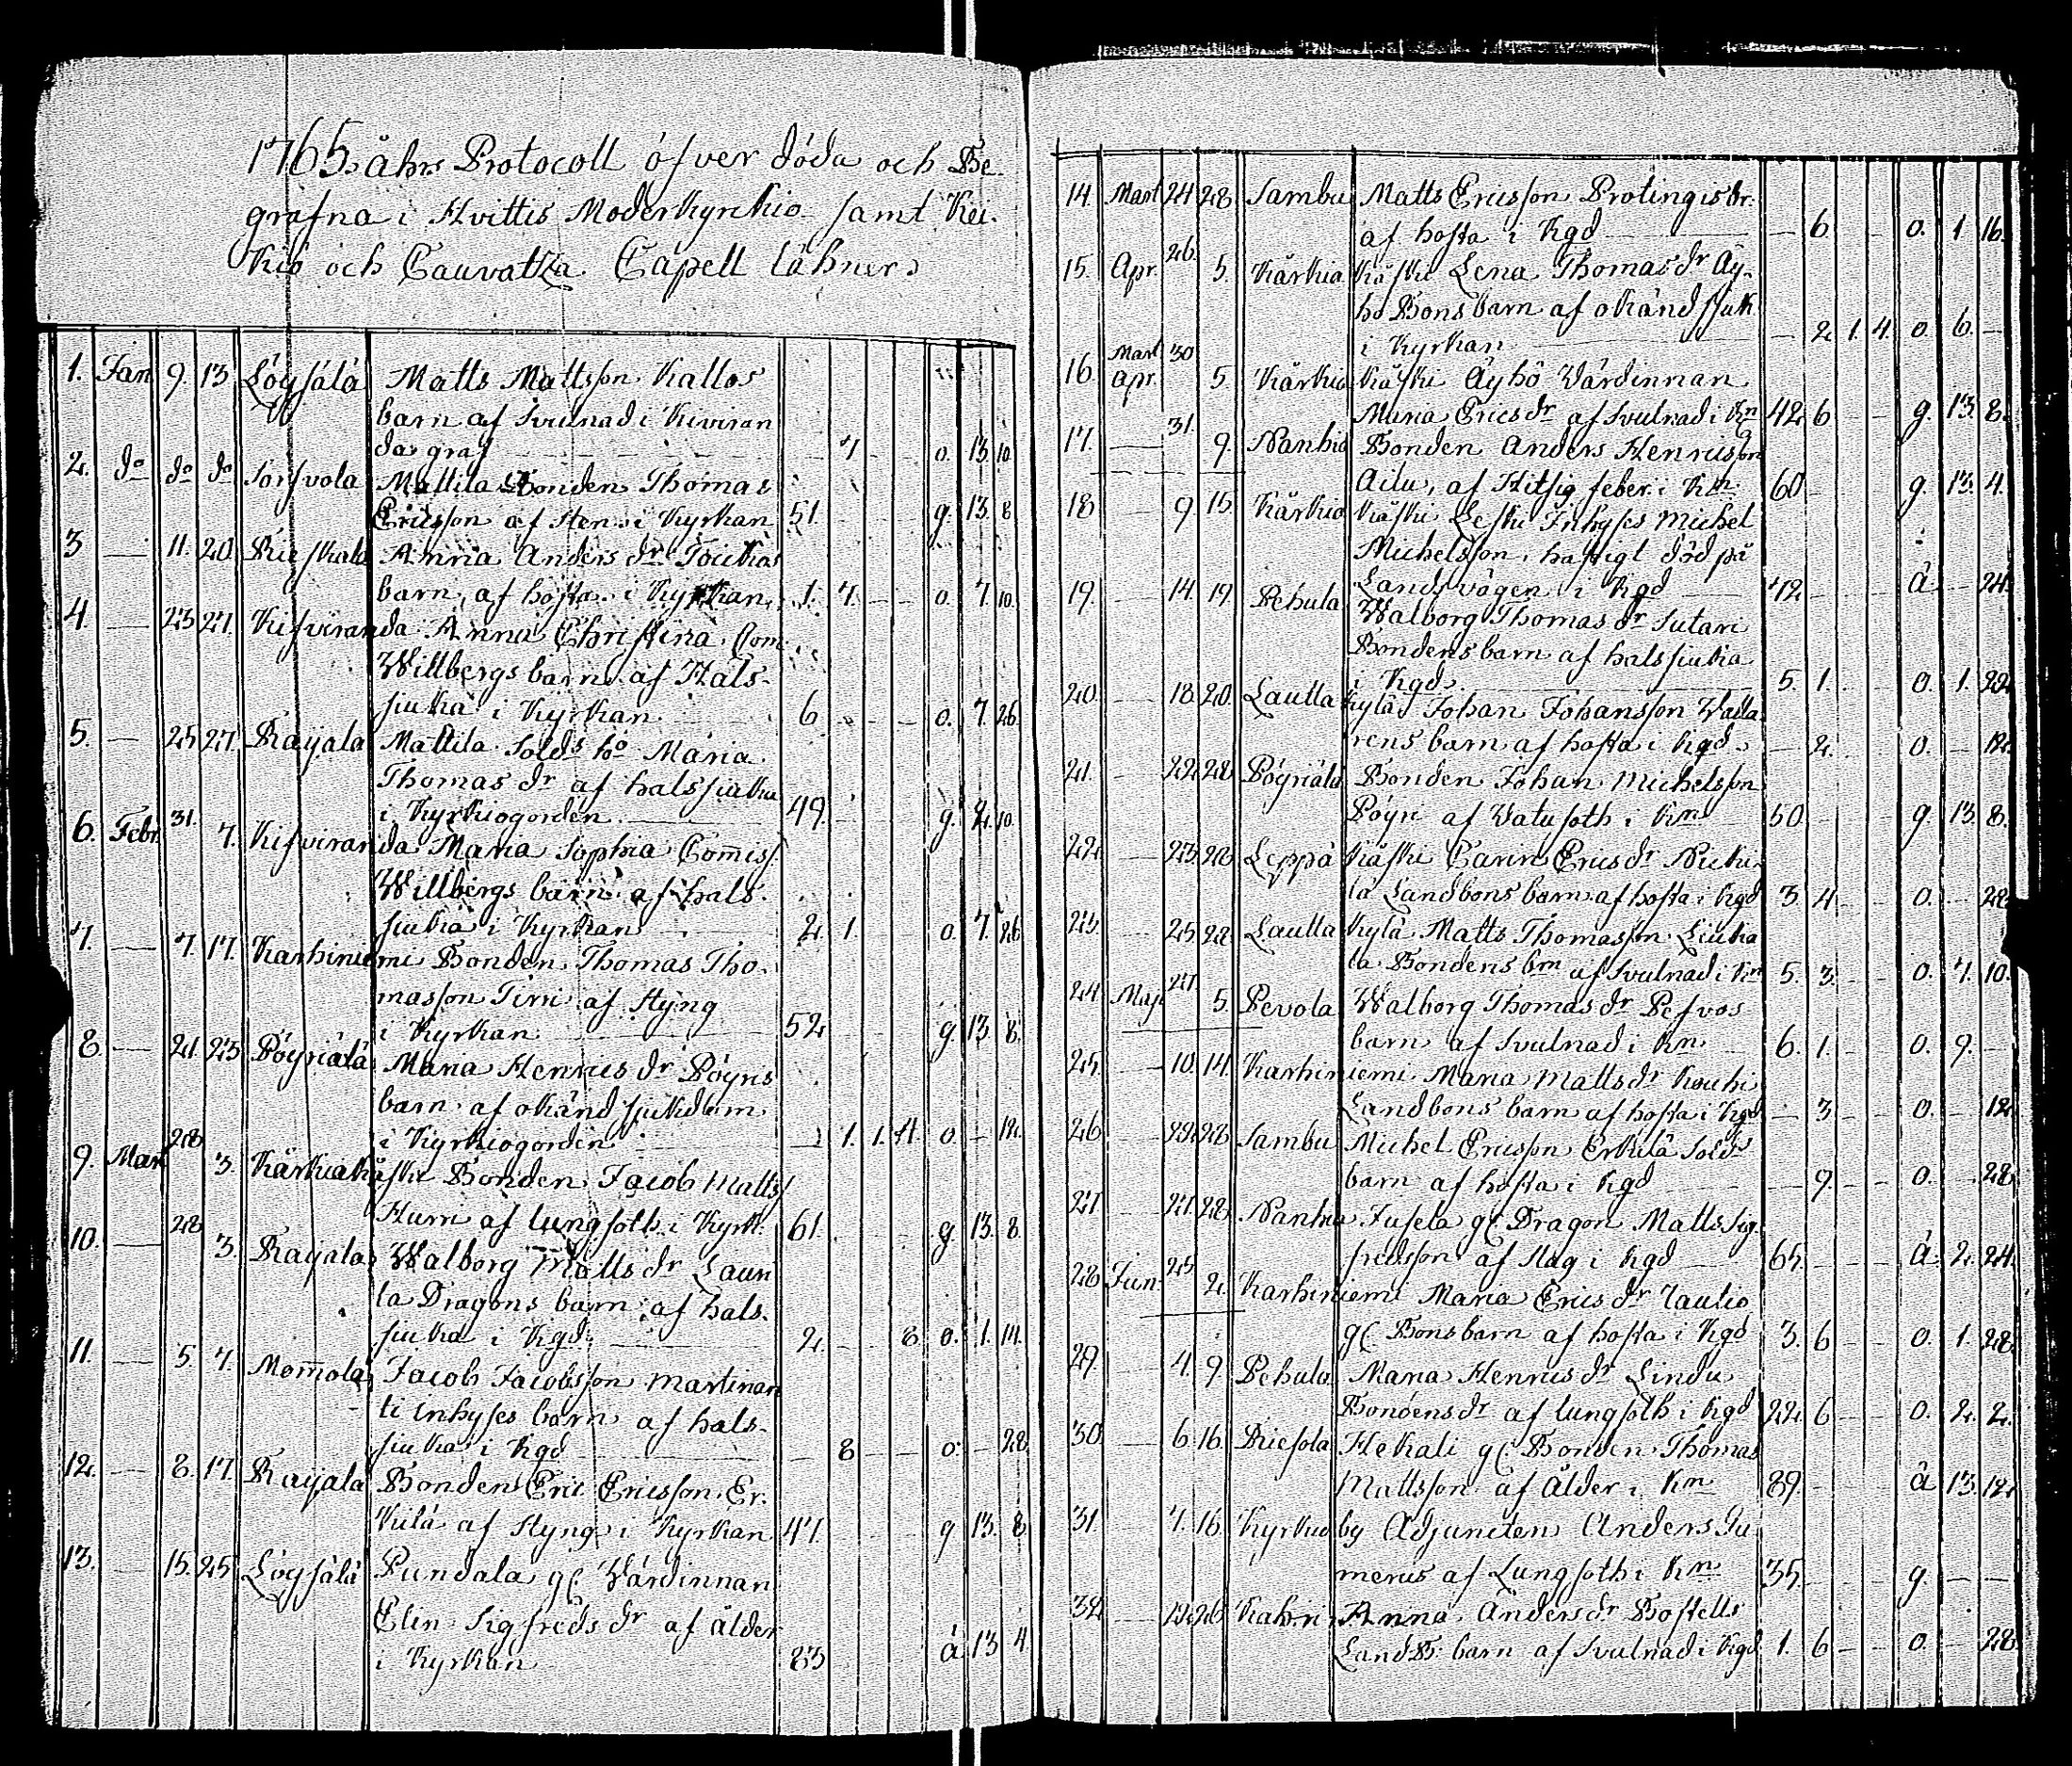 1765 åhrs Protocoll öfver döda och Be-
grafna i Hvittis Moderkyrkio samt Kiu-
kio och Cauvatza Capell lähner.
1. Jan 9. 13 Löysälä Matts Mattsson Kallos
barn af Svulnad i Kiviran
da graf 7. o. 13 10.
2. do do do Sorfvola Mattila Bonden Thomas
Ericsson af Sten i Kyrkan 51. g. 13 8
3 — 11. 20. Rieskala Anna Anders dr Toukas
barn, af hosta i Kyrkan 1. 7. — o. 7. 10.
4. — 23 27. Kifviranda Anna Christina Com
Willbergs barn af Hals-
siuka i Kyrkan 6 o. 7. 26.
5. — 25 27. Rayala Mattila Solds ho Maria
Thomas dr af halssiuka
i Kyrkiogorden 49. g. 2. 10.
6. Febr. 31. 7. Kifviranda Maria Sophia Comiss.
Willbergs barn af hals-
siuka i Kyrkan 2. 1. o. 7. 26
7. — 7. 17. Karhiniemi Bonden Thomas Tho-
masson Tirri af Styng
i Kyrkan 52 g. 13 8.
8. — 21. 23 Pöyriälä Maria Henrics dr Pöyris
barn af okänd siukdom
i Kyrkiogorden — 1. 1. 4. o. — 12.
9. Mart 28 3. Kärkiakäski Bonden Jacob Matts/
Hurri af lungsoth i Kyrk. 61. g. 13. 8.
10. — 28 3. Rayala Walborg Matts dr Lauri
la Dragons barn af hals-
siuka i Kgd. 2. 8 o. 1. 14.
11. — 5 7. Mommola Jacob Jacobsson Martinan
ti inhyses barn af hals-
siuka i Kgd — 8 — — o. — 28.
12. — 8. 17. Rayala Bonden Eric Ericsson Er-
kilä af Styng i Kyrkan 47. g 13. 8
13. — 15. 25 Löysälä Pundala gl. Wärdinnan
Elin Sigfreds dr af ålder
i Kyrkan 83 å 13 4
14. Mart 24 28 Sambu Matts Ericsson Protingis br.
af hosta i Kgd — 6. o. 1 16.
15. Apr. 26. 5. Kärkia Käski Lena Thomas dr Äy-
hö Bons barn af okänd sjuk
i Kyrkan — 2. 1. 4. o. 6. —
16. Mart apr. 30 5 Kärkia Käski Äyhö Wärdinnan
Maria Erics dr af Svulnad i Kn 42 6 g. 13. 8.
17. — 31. 9. Nanhia Bonden Anders Henricsson
Ailu, af Hitsig feber i Kn. 60 g. 13. 4.
18 — 9 15 Kärkia Käski Leski Inhyses Michel
Michelsson, hastigt död på
Landsvägen i Kgd 72 å — 24.
19. — 14. 19. Pehula Walborg Thomas dr Sutari
Bondens barn af halssiuka
i Kgd. 5. 1. o. 1. 22.
20. — 18 20. Lautta Kylä Johan Johansson Wadla
rens barn af hosta i Kgd. — 2. o. — 12.
21. — 22 28 Pöyriälä Bonden Johan Michelsson
Pöyri af Vatusoth i Kn 50. g. 13. 8.
22. — 23 28 Leppä Käski Carin Erics dr Nicki
la Landbons barn af hosta i Kgd 3. 4. o. — 28.
23. — 25 28 Lautta Kylä Matts Thomasson Liuka
la Bondens brn af Svulnad i Kn 5. 3. o. 7. 10.
24. Maj. 27. 5. Pevola Walborg Thomas dr Pefvos
barn af Svulnad i Kn 6. 1. o. 9. —
25. — 10. 14. Karhiniemi Maria Matts dr Kouhi
Landbons barn af hosta i Kgd — 3. o. — 12.
26 — 22 28 Sambu Michel Ericsson Erkilä Solds
barn af hosta i Kgd — 9. o. — 28.
27 — 27. 28. Nanhia Jusela gl. Dragon Matts Sig-
fredsson af Slag i Kgd 65. å 2. 24.
28 Jun. 25 2. Karhiniemi Maria Erics dr Tautio
gl. Bons barn af hosta i Kgd 3. 6 o. 1. 28.
29. — 4. 9 Pehula Maria Henrics dr Lindu
Bondens dr af lungsoth i Kgd 22. 6 o. 2. 2.
30. — 6. 16. Riesola Hekali gl. Bonden Thomas
Mattsson af Ålder i Kn 89. å 13. 12.
31. — 7. 16. Kyrkio by Adjuncten Anders Ju
merus af Lungsoth i Kn 35. g. — —
32 — 22 26 Kahri Anna Anders dr Bostells
Land B. barn af Svulnad i Kgd 1. 6 o. — 28.